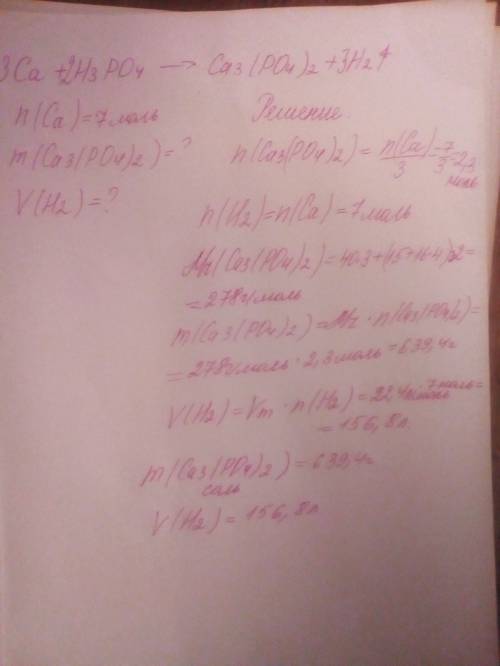 3Ca + 2H3PO4 → Ca3(PO4)2 + 3H2↑
n(Ca) = 7 моль
Решение.
m(Ca3(PO4)2) = ?
n(Ca3(PO4)2) = n(Ca)/3 = 7/3 = 2,3 моль
V(H2) = ?
n(H2) = n(Ca) = 7 моль
Mr(Ca3(PO4)2) = 40·3 + (15+16·4)·2 =
= 278 г/моль
m(Ca3(PO4)2) = Mr · n(Ca3(PO4)2) =
= 278 г/моль · 2,3 моль = 639,4 г
V(H2) = Vm · n(H2) = 22,4 л/моль · 7 моль =
= 156,8 л.
m(Ca3(PO4)2) = 639,4 г
соль
V(H2) = 156,8 л